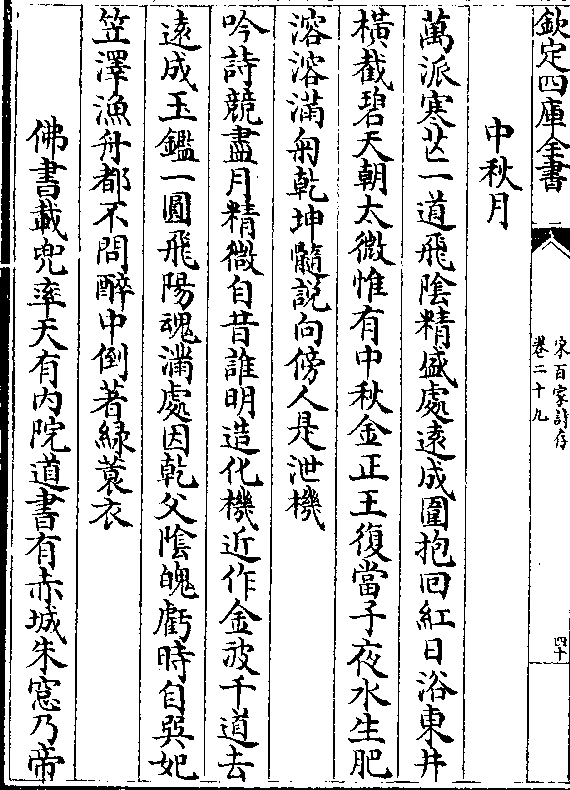 欽定四庫全書
宋百家詩存
卷二十九
四十
中秋月
萬派寒芒一道飛陰精盛處遠成圍抱回紅日浴東井
橫截碧天朝太微惟有中秋金正王復當子夜水生肥
溶溶滿匊乾坤髓説向傍人是泄機
吟詩競盡月精微自昔誰明造化機近作金波千道去
遠成玉鑑一圓飛陽魂滿處因乾父陰魄虧時自巽妃
笠澤漁舟都不問醉中倒著綠蓑衣
佛書載兜率天有内院道書有赤城朱窓乃帝